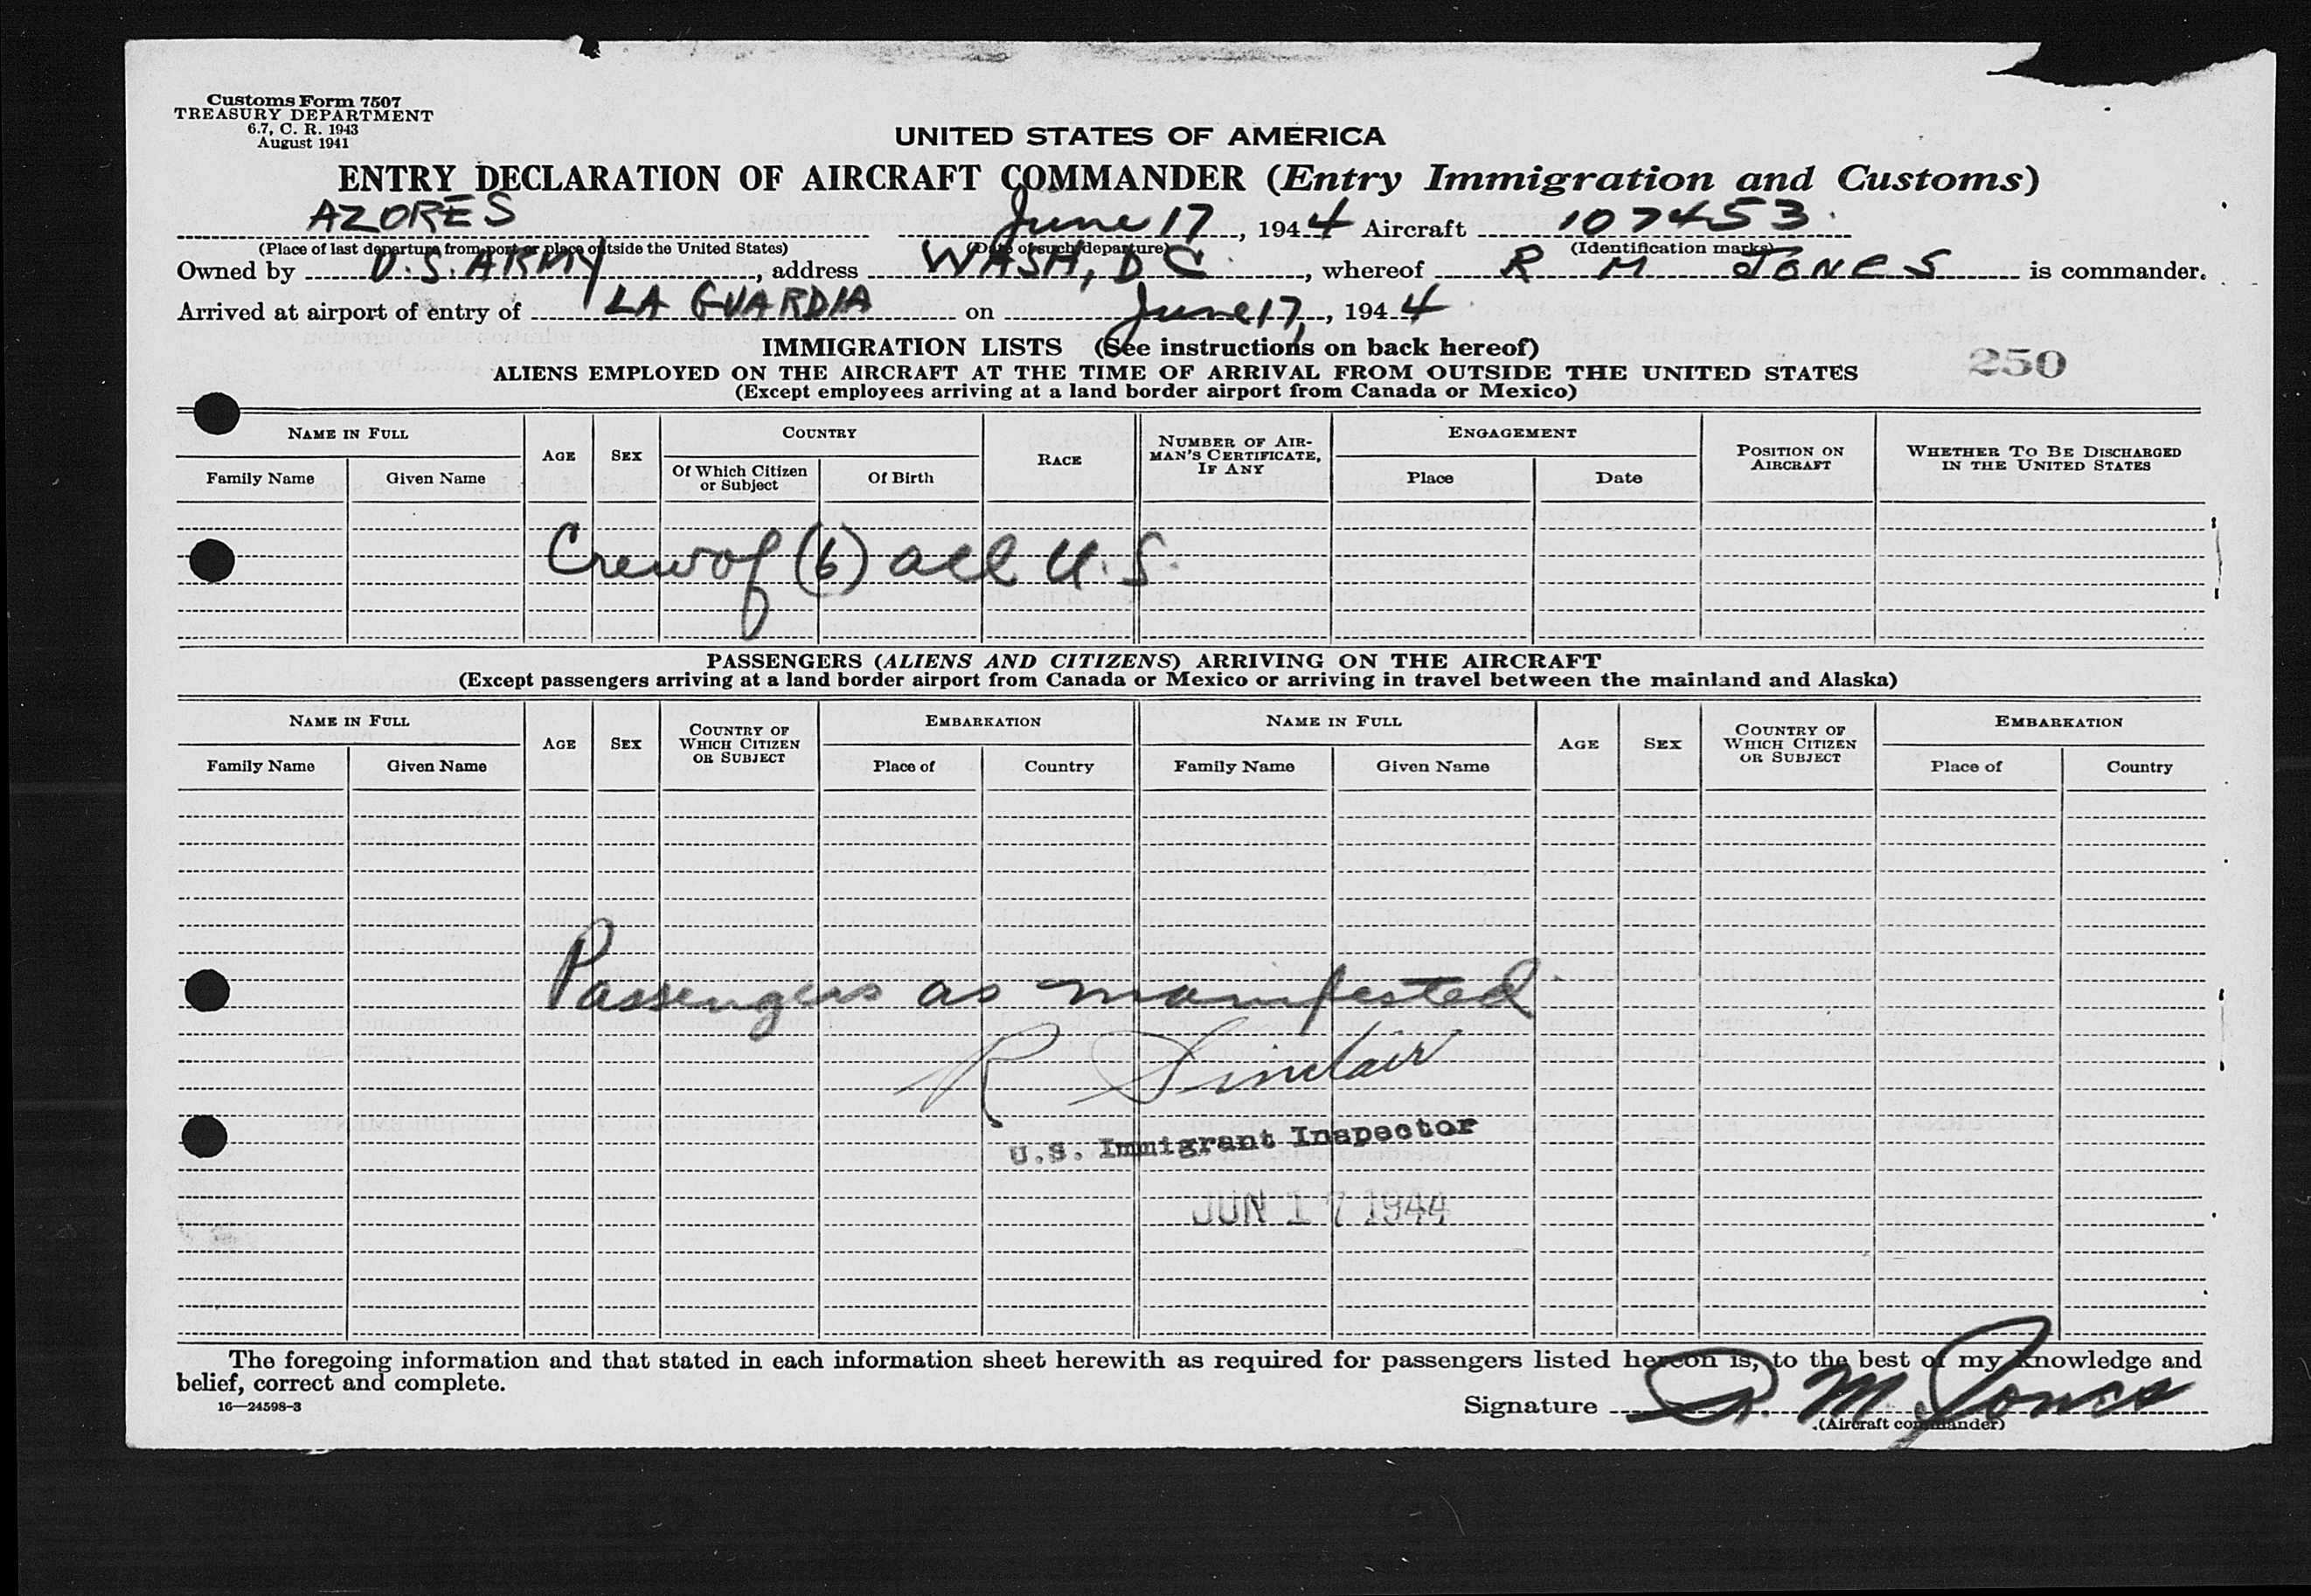 Customs Form 7507
TREASURY DEPARTMENT
6.7, C. R. 1943
August 1941
UNITED STATES OF AMERICA
ENTRY DECLARATION OF AIRCRAFT COMMANDER (Entry Immigration and Customs)
AZORES June 17, 1944 Aircraft 107453
(Place of last departure from port or place outside the United States) (Date of such departure) (Identification marks)
Owned by U.S. ARMY, address WASH, D C, whereof R M JONES is commander.
Arrived at airport of entry of LA GUARDIA on June 17, 1944
IMMIGRATION LISTS (See instructions on back hereof)
ALIENS EMPLOYED ON THE AIRCRAFT AT THE TIME OF ARRIVAL FROM OUTSIDE THE UNITED STATES 250
(Except employees arriving at a land border airport from Canada or Mexico)
NAME IN FULL AGE SEX COUNTRY RACE NUMBER OF AIRMAN'S CERTIFICATE, IF ANY ENGAGEMENT POSITION ON AIRCRAFT WHETHER TO BE DISCHARGED IN THE UNITED STATES
Family Name Given Name Of Which Citizen or Subject Of Birth Place Date
Crew of (6) all U.S.
PASSENGERS (ALIENS AND CITIZENS) ARRIVING ON THE AIRCRAFT
(Except passengers arriving at a land border airport from Canada or Mexico or arriving in travel between the mainland and Alaska)
NAME IN FULL AGE SEX COUNTRY OF WHICH CITIZEN OR SUBJECT EMBARKATION NAME IN FULL AGE SEX COUNTRY OF WHICH CITIZEN OR SUBJECT EMBARKATION
Family Name Given Name Place of Country Family Name Given Name Place of Country
Passengers as manifested
R Sinclair
U.S. Immigrant Inspector
JUN 17 1944
The foregoing information and that stated in each information sheet herewith as required for passengers listed hereon is, to the best of my knowledge and
belief, correct and complete.
16—24598-3
Signature R. M. Jones
(Aircraft commander)